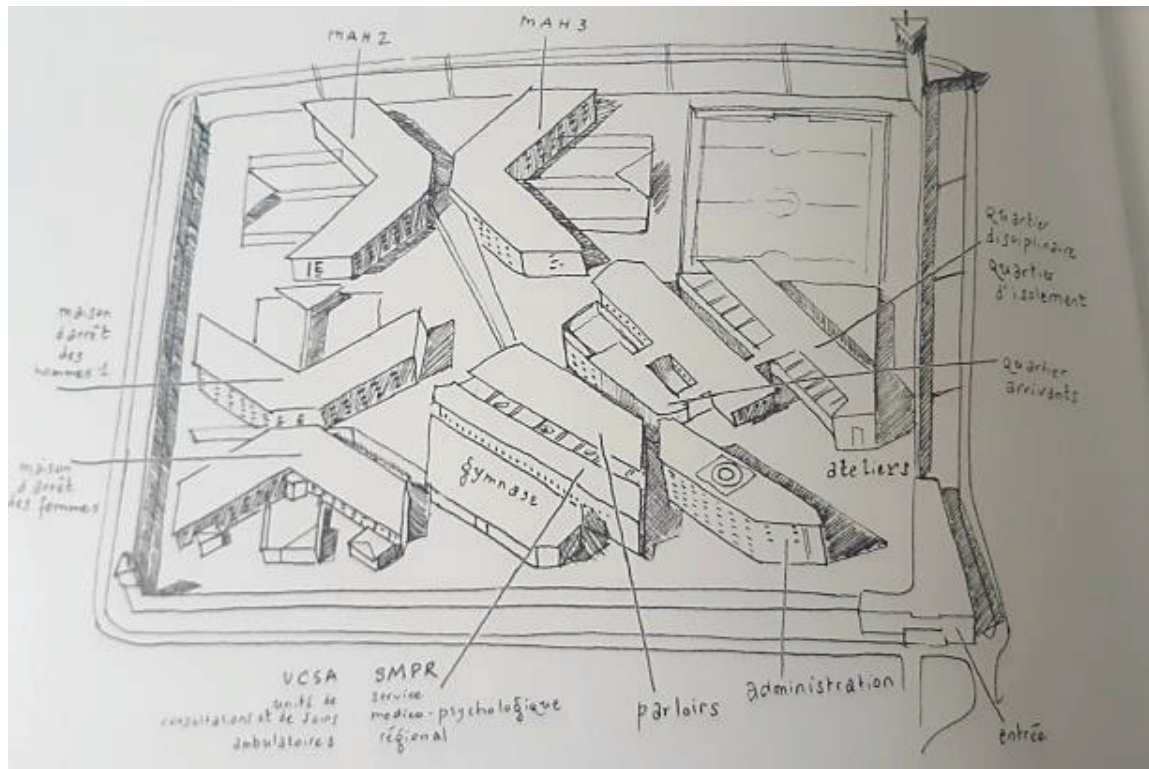 MAH 2
MAH 3
Quartier
disciplinaire
Quartier
d'isolement
maison
d'arrêt
des
hommes 1
Quartier
arrivants
maison
d'arrêt
des femmes
gymnase
ateliers
UCSA
unité de
consultations et de soins
ambulatoires
SMPR
service
medico-psychologique
régional
parloirs
administration
entrée